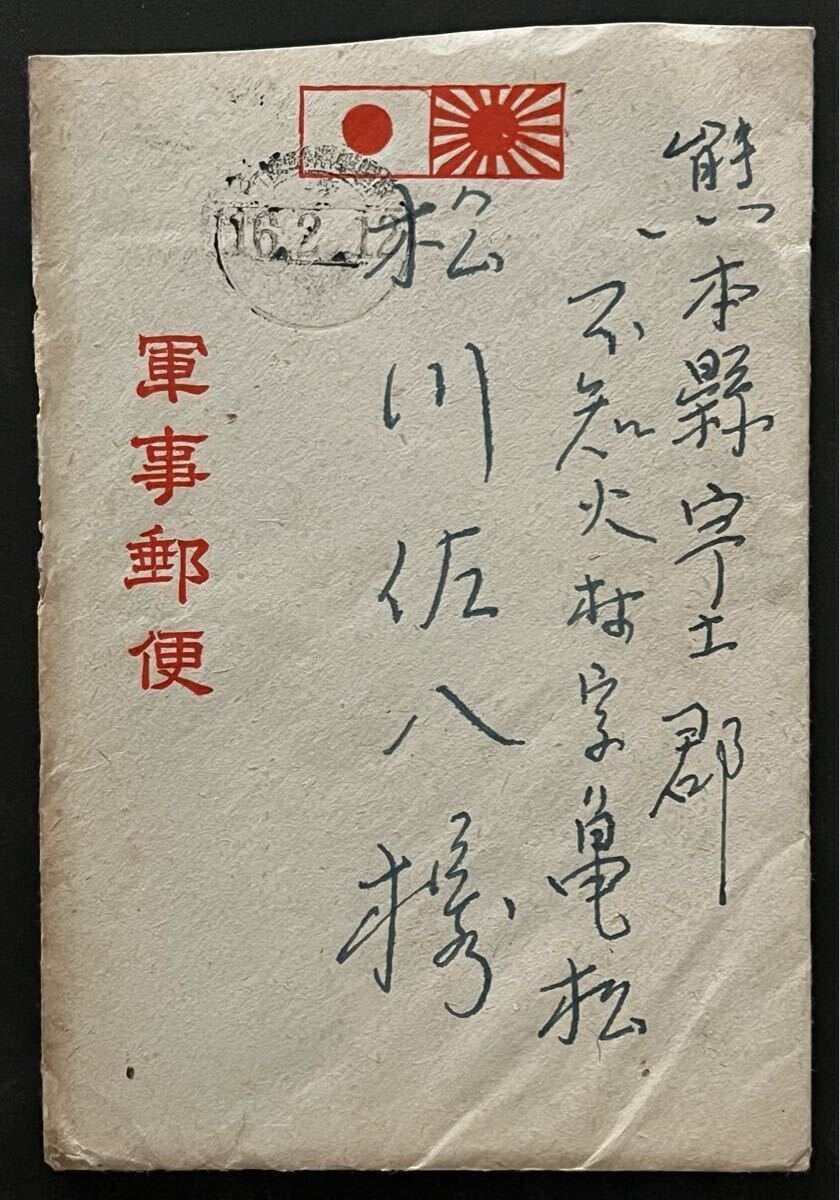 熊本縣宇土郡
不知火村字亀松
松川佐八様
軍事郵便
16.2.12